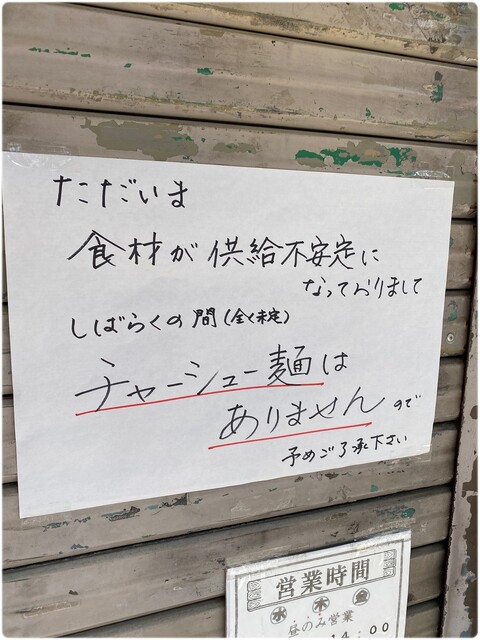 ただいま
食材が供給不安定に
なっておりまして
しばらくの間(全く未定)
チャーシュー麺は
ありませんので
予めご了承下さい
営業時間
水 木 金
昼のみ営業
14:00